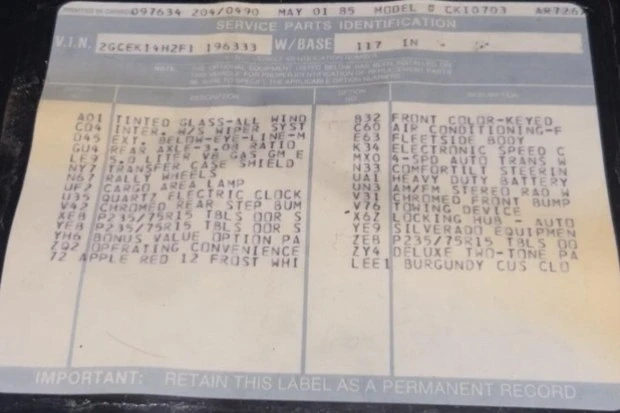 PRINTED IN CANADA 097634 204/0490 MAY 01 85 MODEL # CK10703
SERVICE PARTS IDENTIFICATION
V.I.N. 2GCEK14H2F1 196333 W/BASE 117 IN
NOTE: THE OPTIONAL EQUIPMENT LISTED BELOW HAS BEEN INSTALLED ON
THIS VEHICLE FOR PROPER IDENTIFICATION OF REPLACEMENT PARTS
BE SURE TO SPECIFY THE APPLICABLE OPTION NUMBERS
DESCRIPTION OPTION NO. DESCRIPTION
A01 TINTED GLASS-ALL WIND B32 FRONT COLOR-KEYED
CD4 INTER. W/S WIPER SYST C60 AIR CONDITIONING-F
D45 EXT. BELOW-EYE-LINE-M E63 FLEETSIDE BODY
GU4 REAR AXLE-3.08 RATIO K34 ELECTRONIC SPEED C
LE9 5.0 LITER V8 GAS GM E MX0 4-SPD AUTO TRANS W
NY7 TRANSFER CASE SHIELD N33 COMFORTILT STEERIN
N67 RALLY WHEELS UA1 HEAVY DUTY BATTERY
UF2 CARGO AREA LAMP UN3 AM/FM STEREO RAD W
U35 QUARTZ ELECTRIC CLOCK V31 CHROMED FRONT BUMP
V42 CHROMED REAR STEP BUM V76 TOWING DEVICE
XEB P235/75R15 TBLS OOR S X6Z LOCKING HUB - AUTO
YEB P235/75R15 TBLS OOR S YE9 SILVERADO EQUIPMEN
YH6 BONUS VALUE OPTION PA ZEB P235/75R15 TBLS OO
7Q2 OPERATING CONVENIENCE ZY4 DELUXE TWO-TONE PA
72 APPLE RED 12 FROST WHI LEE1 BURGUNDY CUS CLO
IMPORTANT: RETAIN THIS LABEL AS A PERMANENT RECORD